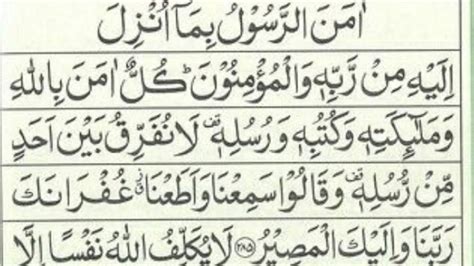 اٰمَنَ الرَّسُوْلُ بِمَاۤ اُنْزِلَ
اِلَيْهِ مِنْ رَّبِّهٖ وَالْمُؤْمِنُوْنَ ؕ كُلٌّ اٰمَنَ بِاللّٰهِ
وَمَلٰٓئِكَتِهٖ وَكُتُبِهٖ وَرُسُلِهٖ ۟ لَا نُفَرِّقُ بَيْنَ اَحَدٍ
مِّنْ رُّسُلِهٖ ۟ وَقَالُوْا سَمِعْنَا وَاَطَعْنَا ٭۫ غُفْرَانَكَ
رَبَّنَا وَاِلَيْكَ الْمَصِيْرُ ﴿۲۸۵﴾ لَا يُكَلِّفُ اللّٰهُ نَفْسًا اِلَّا